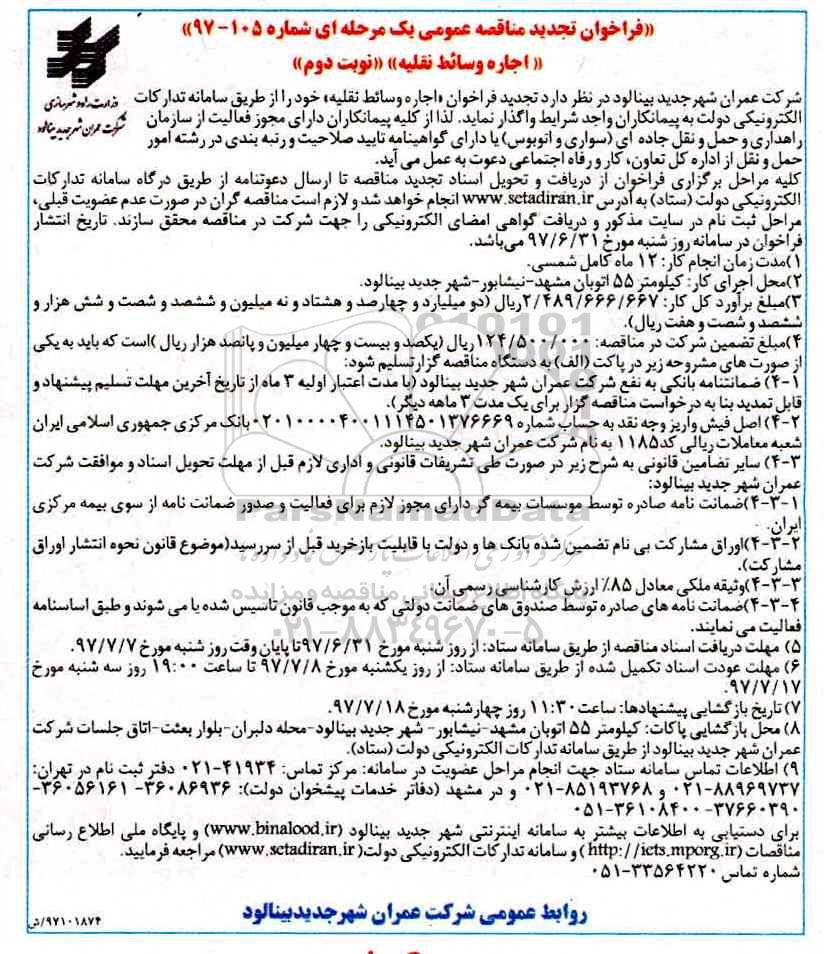 «فراخوان تجدید مناقصه عمومی یک مرحله ای شماره ۱۰۵-۹۷»
« اجاره وسائط نقلیه» «نوبت دوم»
وزارت راه و شهرسازی
شرکت عمران شهر جدید بینالود
شرکت عمران شهر جدید بینالود در نظر دارد تجدید فراخوان «اجاره وسائط نقلیه» خود را از طریق سامانه تدارکات
الکترونیکی دولت به پیمانکاران واجد شرایط واگذار نماید. لذا از کلیه پیمانکاران دارای مجوز فعالیت از سازمان
راهداری و حمل و نقل جاده ای (سواری و اتوبوس) یا دارای گواهینامه تایید صلاحیت و رتبه بندی در رشته امور
حمل و نقل از اداره کل تعاون، کار و رفاه اجتماعی دعوت به عمل می آید.
کلیه مراحل برگزاری فراخوان از دریافت و تحویل اسناد تجدید مناقصه تا ارسال دعوتنامه از طریق درگاه سامانه تدارکات
الکترونیکی دولت (ستاد) به آدرس www.setadiran.ir انجام خواهد شد و لازم است مناقصه گران در صورت عدم عضویت قبلی،
مراحل ثبت نام در سایت مذکور و دریافت گواهی امضای الکترونیکی را جهت شرکت در مناقصه محقق سازند. تاریخ انتشار
فراخوان در سامانه روز شنبه مورخ ۹۷/۶/۳۱ می‌باشد.
۱)مدت زمان انجام کار: ۱۲ ماه کامل شمسی.
۲)محل اجرای کار: کیلومتر ۵۵ اتوبان مشهد-نیشابور-شهر جدید بینالود.
۳)مبلغ برآورد کل کار: ۲/۴۸۹/۶۶۶/۶۶۷ریال (دو میلیارد و چهارصد و هشتاد و نه میلیون و ششصد و شصت و شش هزار و
ششصد و شصت و هفت ریال).
۴)مبلغ تضمین شرکت در مناقصه: ۱۲۴/۵۰۰/۰۰۰ریال (یکصد و بیست و چهار میلیون و پانصد هزار ریال )است که باید به یکی
از صورت های مشروحه زیر در پاکت (الف) به دستگاه مناقصه گزار تسلیم شود:
۴-۱) ضمانتنامه بانکی به نفع شرکت عمران شهر جدید بینالود (با مدت اعتبار اولیه ۳ ماه از تاریخ آخرین مهلت تسلیم پیشنهاد و
قابل تمدید بنا به درخواست مناقصه گزار برای یک مدت ۳ ماهه دیگر).
۴-۲) اصل فیش واریز وجه نقد به حساب شماره ۰۲۰۱۰۰۰۰۴۰۰۱۱۱۴۵۰۱۳۷۶۶۶۹بانک مرکزی جمهوری اسلامی ایران
شعبه معاملات ریالی کد۱۱۸۵ به نام شرکت عمران شهر جدید بینالود.
۴-۳) سایر تضامین قانونی به شرح زیر در صورت طی تشریفات قانونی و اداری لازم قبل از مهلت تحویل اسناد و موافقت شرکت
عمران شهر جدید بینالود:
۴-۳-۱)ضمانت نامه صادره توسط موسسات بیمه گر دارای مجوز لازم برای فعالیت و صدور ضمانت نامه از سوی بیمه مرکزی
ایران.
۴-۳-۲)اوراق مشارکت بی نام تضمین شده بانک ها و دولت با قابلیت بازخرید قبل از سررسید(موضوع قانون نحوه انتشار اوراق
مشارکت).
۴-۳-۳)وثیقه ملکی معادل ۸۵٪ ارزش کارشناسی رسمی آن.
۴-۳-۴)ضمانت نامه های صادره توسط صندوق های ضمانت دولتی که به موجب قانون تاسیس شده یا می شوند و طبق اساسنامه
فعالیت می نمایند.
۵) مهلت دریافت اسناد مناقصه از طریق سامانه ستاد: از روز شنبه مورخ ۹۷/۶/۳۱تا پایان وقت روز شنبه مورخ ۹۷/۷/۷.
۶) مهلت عودت اسناد تکمیل شده از طریق سامانه ستاد: از روز یکشنبه مورخ ۹۷/۷/۸ تا ساعت ۱۹:۰۰ روز سه شنبه مورخ
۹۷/۷/۱۷.
۷) تاریخ بازگشایی پیشنهادها: ساعت ۱۱:۳۰ روز چهارشنبه مورخ ۹۷/۷/۱۸.
۸) محل بازگشایی پاکات: کیلومتر ۵۵ اتوبان مشهد-نیشابور- شهر جدید بینالود-محله دلبران-بلوار بعثت-اتاق جلسات شرکت
عمران شهر جدید بینالود از طریق سامانه تدارکات الکترونیکی دولت (ستاد).
۹) اطلاعات تماس سامانه ستاد جهت انجام مراحل عضویت در سامانه: مرکز تماس: ۴۱۹۳۴-۰۲۱ دفتر ثبت نام در تهران:
۸۸۹۶۹۷۳۷-۰۲۱ و ۸۵۱۹۳۷۶۸-۰۲۱ و در مشهد (دفاتر خدمات پیشخوان دولت): ۳۶۰۸۶۹۳۶- ۳۶۰۵۶۱۶۱-
۳۷۶۶۰۳۹۰- ۳۶۱۰۸۴۰۰-۰۵۱
برای دستیابی به اطلاعات بیشتر به سامانه اینترنتی شهر جدید بینالود (www.binalood.ir) و پایگاه ملی اطلاع رسانی
مناقصات (http://iets.mporg.ir ) و سامانه تدارکات الکترونیکی دولت( www.setadiran.ir) مراجعه فرمایید.
شماره تماس ۳۳۵۶۴۲۲۰-۰۵۱
روابط عمومی شرکت عمران شهرجدیدبینالود
۹۷۱۰۱۸۷۴/ش
ParsNamadData
۰۲۱-۸۸۳۴۹۶۷۰-۵